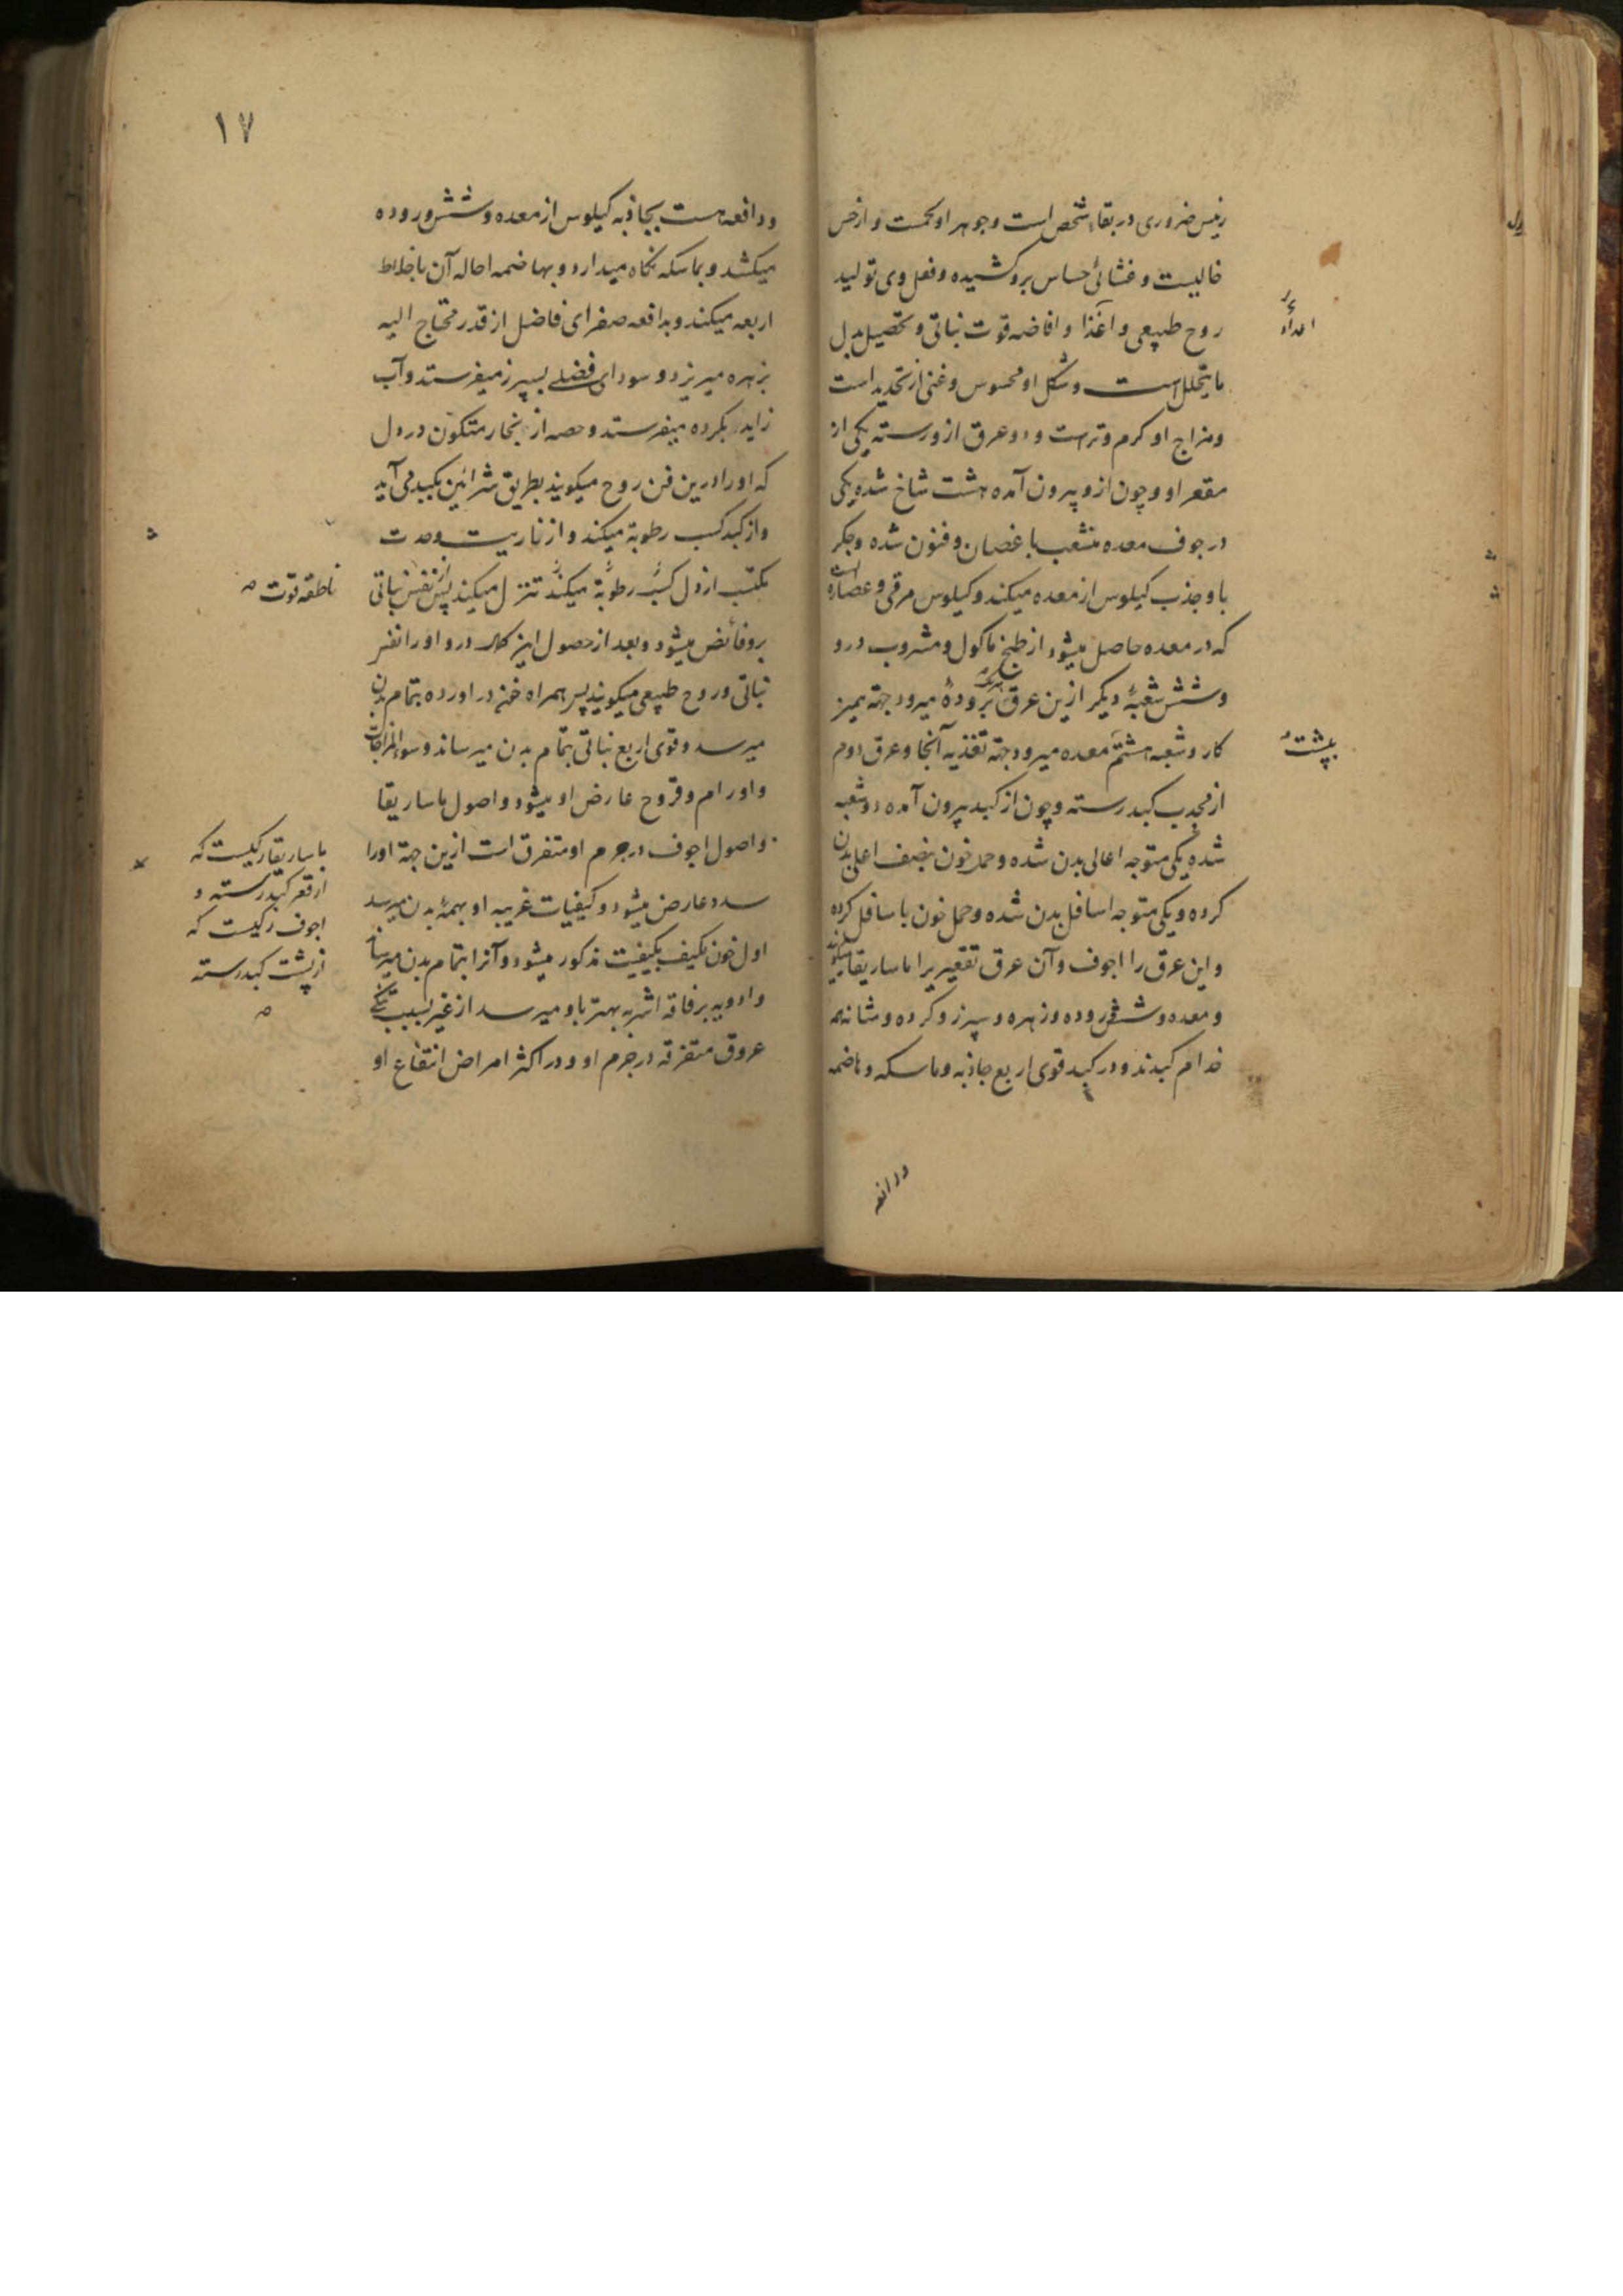 رئیس ضروری در بقاء شخص است و جوهر او لحمست و از حس
خالیست و غشائی حساس برو کشیده و فعل وی تولید
روح طبیعی و اغذا و افاضه قوت نباتی و تحصیل بدل
ما یتحلل است و شکل او محسوس و غنی از تحدید است
و مزاج او کرم و تر است و دو عرق ازو رسته یکی از
مقعر او و چون ازو بیرون آمده هشت شاخ شده یکی
در جوف معده منشعب باغصان و فنون شده و جکر
باو جذب کیلوس از معده میکند و کیلوس مرقی و عصاره
که در معده حاصل میشود از طبخ ماکول و مشروب درو
و شش شعبهٔ دیکر ازین عرق بروده میرود جهة تمیز
کار و شعبه هشتم معده میرود جهة تغذیه آنجا و عرق دوم
از محدب کبد رسته و چون از کبد بیرون آمده دو شعبه
شده یکی متوجه اعالی بدن شده و حمل خون بنصف اعلی بدن
کرده و یکی متوجه اسافل بدن شده و حمل خون باسافل کرده
و این عرق را اجوف و آن عرق تقعیری را ماساریقا میکویند
و معده و شش روده و زهره و سپرز و کرده و مثانه همه
خدام کبدند و در کبد قوی اربع جاذبه و ماسکه و هاضمه
ودافعه
۱۷
و دافعه هست بجاذبه کیلوس از معده و شش روده
میکشد و بماسکه نکاه میدارد و بهاضمه احاله آن باخلاط
اربعه میکند و بدافعه صفرای فاضل از قدر محتاج الیه
بزهره میریزد و سودای فضلی بسپرز میفرستد و آب
زاید بکرده میفرستد و حصه از بخار متکون در دل
که او را درین فن روح میکویند بطریق شرائین بکبد می آید
و از کبد کسب رطوبة میکند و از ناریت و حدت
مکتسب از دل کسب رطوبة میکند تنزل میکند پس از نفس نباتی
برو فائض میشود و بعد از حصول این کمال درو او را نفس
نباتی و روح طبیعی میکویند پس همراه خون در اورده بتمام بدن
میرسد و قوی اربع نباتی بتمام بدن میرساند و سوء المزاجات
و اورام و قروح عارض او میشود و اصول ماساریقا
و اصول اجوف در جرم او متفرق است ازین جهة او را
سدد عارض میشود و کیفیات غریبه او بهمهٔ بدن میرسد
اول خون مکیف بکیفیت مذکور میشود و آنرا بتمام بدن میرساند
و ادویه برفاقه اشربه بهتر باو میرسد از غیر بسبب تنکی
عروق متفرقه در جرم او و در اکثر امراض انتفاع او
ناطقه قوت
ماساریقا رکیست که
از قعر کبد رسته و
اجوف رکیست که
از پشت کبد رسته